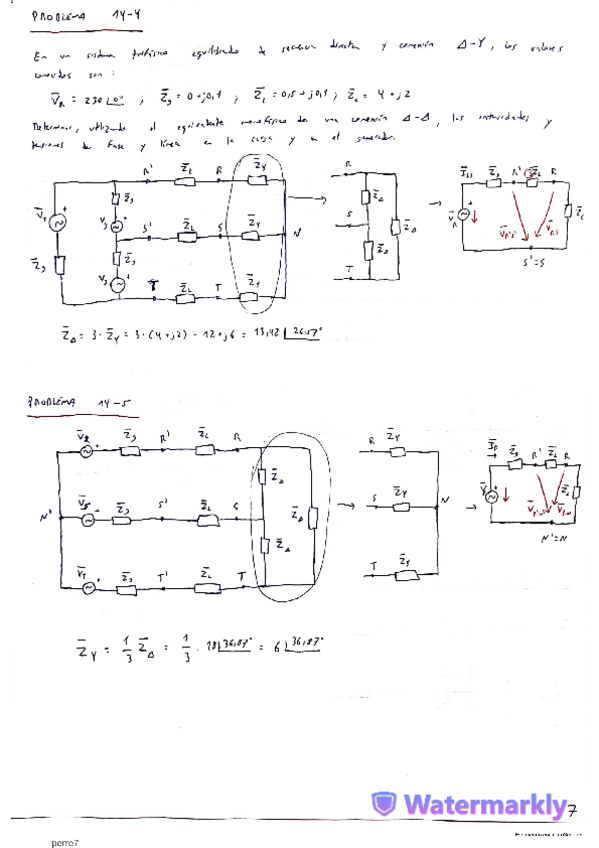 PROBLEMA 14-4
En un sistema trifásico equilibrado de secuencia directa y conexión Δ-Y, los valores
conocidos son:
V̄R = 230∟0° ; Z̄g = 0+j0,1 ; Z̄L = 0,5+j0,1 ; Z̄c = 4+j2
Determinar, utilizando el equivalente monofásico de una conexión Δ-Δ, las intensidades y
tensiones de fase y línea en la carga y en el generador.
R' Z̄L R Z̄Y
S' Z̄L S Z̄Y N
T Z̄L T Z̄Y
Z̄g
Z̄g
Z̄g
R
S
T
Z̄Δ
Z̄Δ
Z̄Δ
Z̄g R' 3Z̄L R
V̄R
Z̄c
S'=S
Z̄Δ = 3·Z̄Y = 3·(4+j2) = 12+j6 = 13,42∟26,57°
PROBLEMA 14-5
V̄R Z̄g R' Z̄L R
N' V̄S Z̄g S' Z̄L S
V̄T Z̄g T' Z̄L T
Z̄Δ
Z̄Δ
Z̄Δ
R Z̄Y
S Z̄Y N
T Z̄Y
Z̄g R' Z̄L R
N'=N
Z̄Y = 1/3 Z̄Δ = 1/3 · 18∟36,87° = 6∟36,87°
Watermarkly
7
perre7